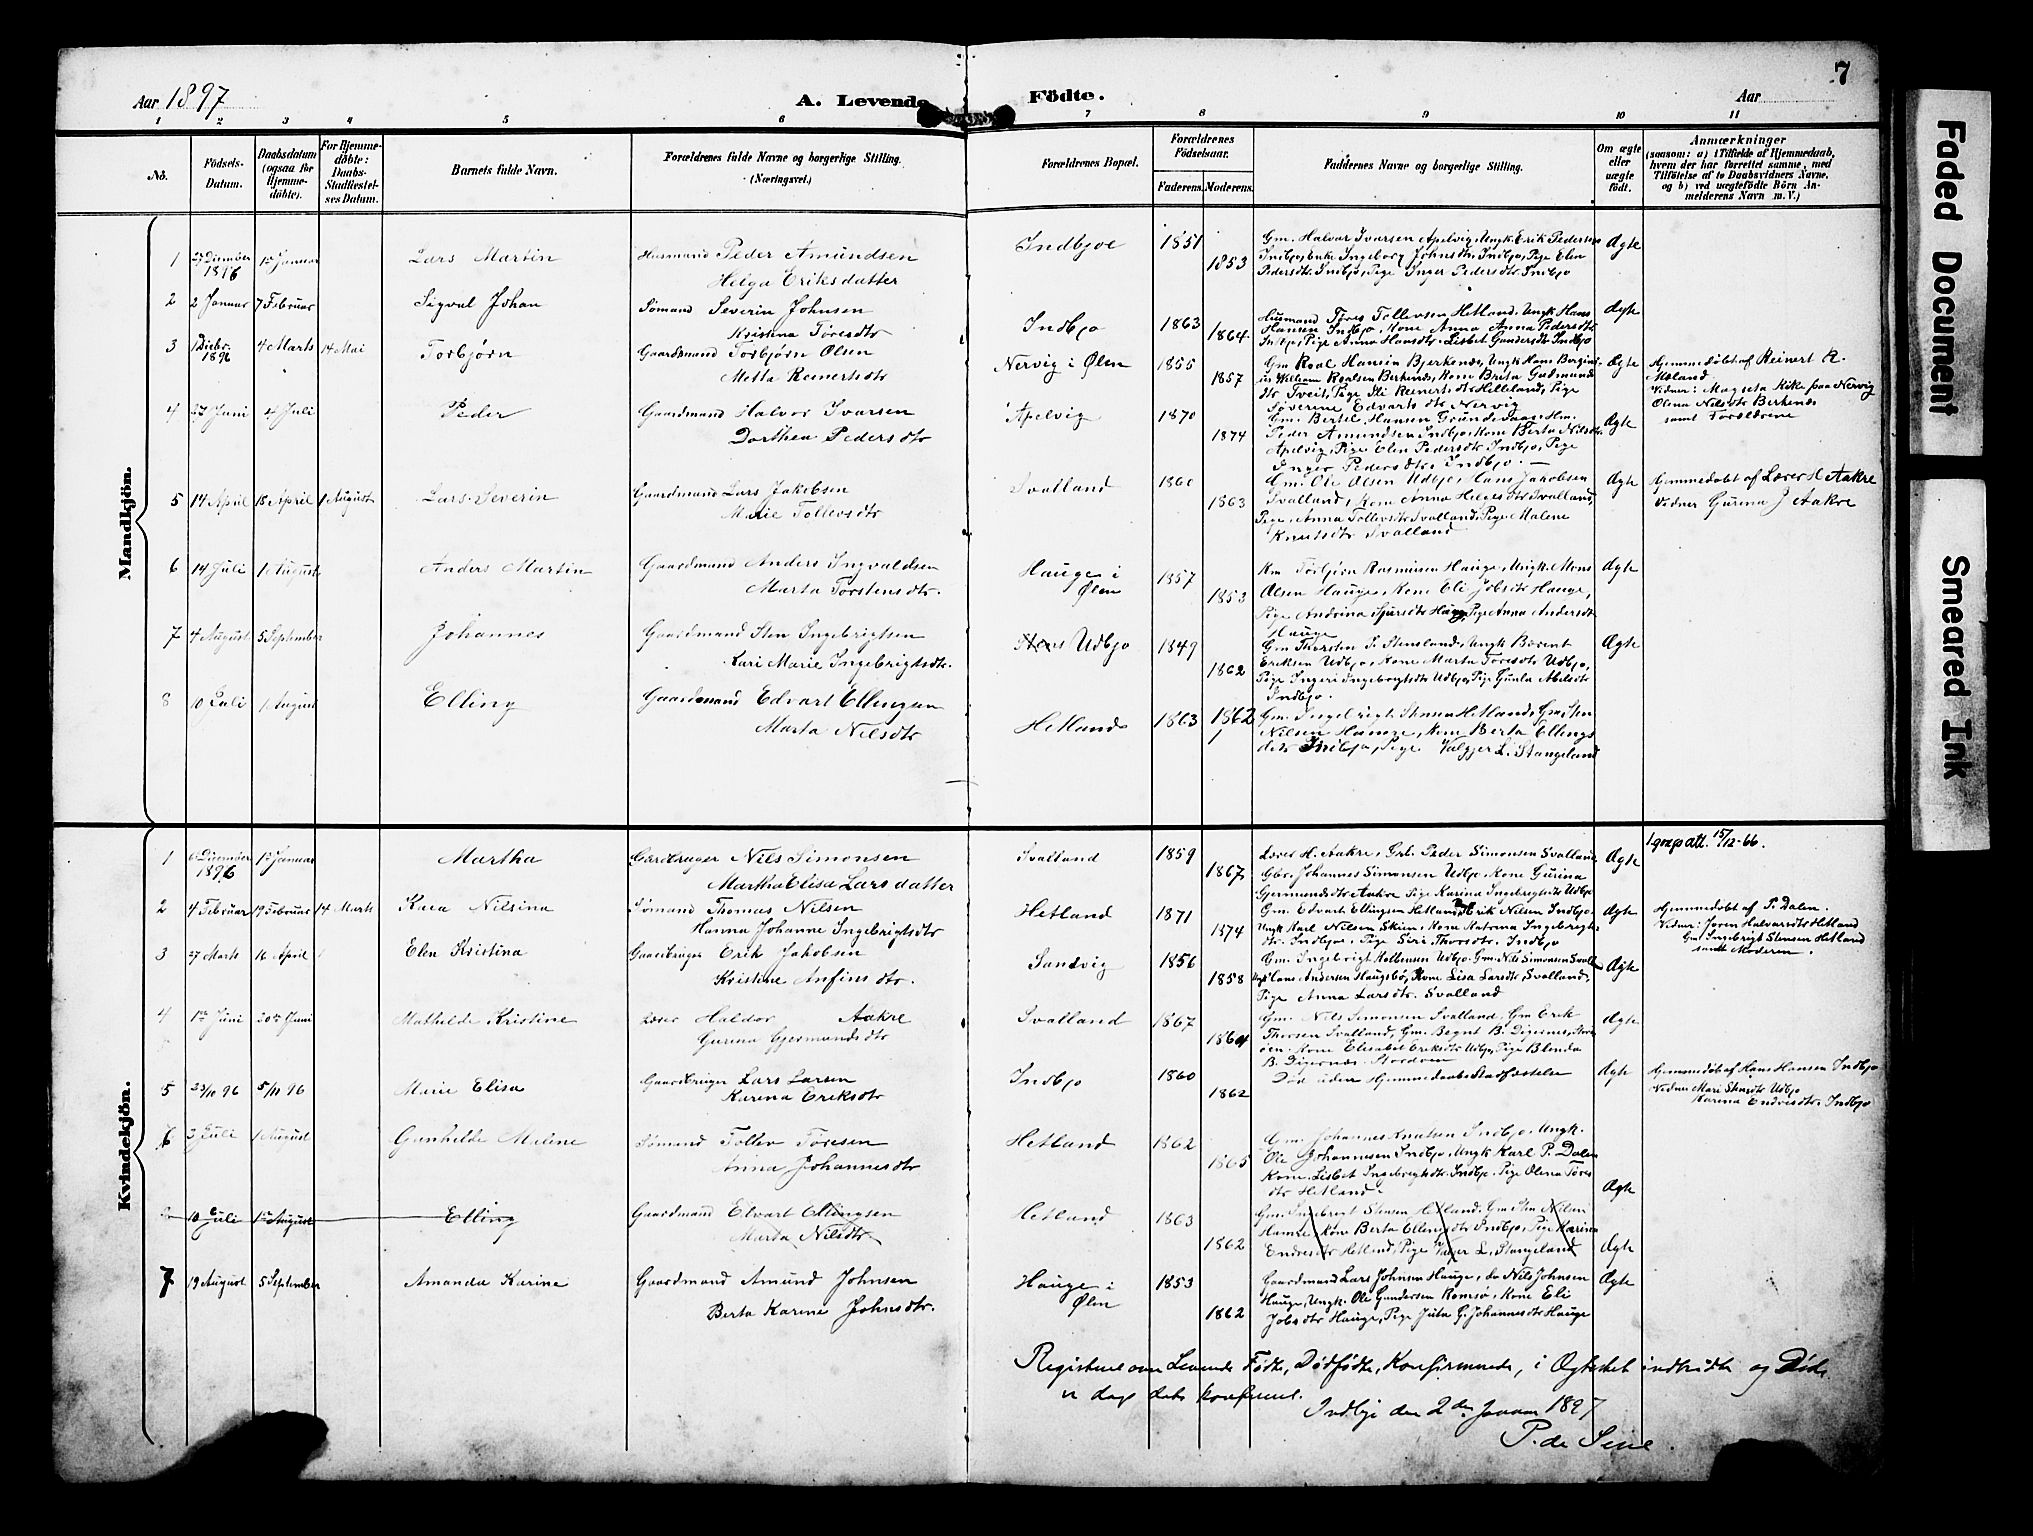 Aar 1897
A. Levende Födte.
Aar
7
1 2 3 4 5 6 7 8 9 10 11
No.
Födsels-Datum.
Daabsdatum (ogsaa for Hjemmedöbte).
For Hjemmedöbte: Daabs-Stadfestelses Datum.
Barnets fulde Navn.
Forældrenes fulde Navne og borgerlige Stilling.
(Næringsvei.)
Forældrenes Bopæl.
Forældrenes Födselsaar.
Faderens. Moderens.
Faddernes Navne og borgerlige Stilling.
Om ægte eller uægte födt.
Anmærkninger
(saasom: a) i Tilfælde af Hjemmedaab, hvem der har forrettet samme, med Tilföielse af to Daabsvidners Navne, og b) ved uægtefödte Börn Anmelderens Navn m. V.)
Mandkjön.
1 1896 1 Januar Lars Martin Husmand Peder Amundsen Indbjoe 1851 Gm. Halvor Ivarsen Apelvig, Ungk. Erik Pedersen Ægte
Helga Eriksdatter 1853 Indbjo, Enke Ingeborg Johnsdtr. Indbjo, Pige Elen
Pedersdtr. Indbjo, Pige Inger Pedersdtr. Indbjo
2 2 Januar 7 Februar Sigval Johan Sömand Severin Johnsen Indbjo 1863 Husmand Töres Tollevsen Hetland, Ungk. Hans Ægte
Kristina Töresdtr 1864 Hansen Indbjo, Kone Anna Pedersdtr
Indbjo, Pige Anna Hansdtr. Lisbet Gundersdtr Indbjo
3 1896 4 Marts 14 Mai Torbjørn Gaardmand Torbjørn Olsen Nervig i Ølen 1855 Gm Roal Hansen Bjerkenes, Ungk Hans Ægte Hjemmedøbt af Reinert R.
Metta Reinertsdtr 1857 William Roalsen Berkenes, Kone Brita Gudmunds Mæland
dtr Tveit, Pige Eli Reinertsdtr Helleland, Pige Vidner: Magreta Kike paa Nervig
Severine Edvartsdtr Nervig Olena Nilsdtr Berkenes
samt Forældrene
4 27 Juni 4 Juli Peder Gaardmand Halvor Ivarsen Apelvig 1870 Gm. Bertel Hansen Grindevaas Hm. Ægte
Dorthea Pedersdtr 1874 Peder Amundsen Indbjo, Kone Berta Nilsdtr.
Apelvig, Pige Elen Pedersdtr Indbjo, Pige
Inger Pedersdtr, Indbjo.
5 14 April 18 April 1 August Lars Severin Gaardmand Lars Jakobsen Svalland 1860 Gm. Ole Olsen Udbjo, Hans Jakobsen Ægte Hjemmedøbt af Lærer H Aakre
Marie Tollevsdtr 1863 Svalland, Kone Anna Svalland, Vidner Gurina J Aakre
Pige Anna Tollevsdtr Svalland, Pige Malene
Knutsdtr Svalland
6 14 Juli 1 August Anders Martin Gaardmand Anders Ingvaldsen Hauge i Ølen 1857 Torbjörn Rasmusen Hauge, Ungk. Mons Ægte
Marta Torstensdtr. 1853 Olsen Hauge, Kone Eli Jobsdtr Hauge,
Pige Andrina Hauge, Pige Anna Andersdtr
Hauge
7 4 August 5 September Johannes Gaardmand Sten Ingebrigtsen Udbjo 1849 Gm Thorsten Stensland, Ungk Berent Ægte
Kari Marie Ingebrigtsdtr. 1862 Eriksen Udbjo, Kone Marta Töresdtr Udbjo,
Pige Ingeri Ingebrigtsdtr Udbjo, Pige Gunla
Indbjo.
8 10 Juli 1 August Elling Gaardmand Edvart Ellingsen Hetland 1863 1862 Gm. Ingebrigt Stensen Hetland, Gm Sten
Marta Nilsdtr Nilsen Hamre, Kone Berta Ellings
dtr Indbjo, Pige Valgjer L. Stangeland
Kvindekjön.
1 6 1896 1 Januar Martha Gardbruger Nils Simonsen Svalland 1859 Lærer H. Aakre, Grb. Peder Simonsen Svalland Ægte 15/12-66.
Martha Elisa Larsdatter 1867 Gbr. Johannes Simonsen Udbjo, Kone Gurina
Gjermundsdtr Aakre Pige Karina Ingebrigtsdtr Udbjo
2 4 Februar 19 Februar 14 Marts Kaia Nilsina Sömand Thomas Nilsen Hetland 1871 Gm. Edvart Ellingsen Hetland, Erik Nilsen Indbjo Ægte Hjemmedøbt af P. Dalen.
Hanna Johanne Ingebrigtsdtr 1874 Ungk Karl Nilsen Skien, Kone Katrina Ingebrigts Vidner: Joren Halvorsdtr Hetland
dtr. Indbjoe, Pige Siri Thorsdtr. Indbjo Gm. Ingebrigt Stensen Hetland
samt Moderen.
3 27 Marts 16 April Elen Kristina Gaardbruger Erik Jakobsen Sandvig 1856 Gm. Ingebrigt Udbjo. Gm. Nils Simonsen Svalland Ægte
Kristine Anfinsdtr. 1858 Lars Andersen Haugsbö, Kone Lisa Larsdtr, Svalland,
Pige Anna Larsdtr. Svalland
4 1ste Juni 20de Juni Mathilde Kristine Lærer Haldor Aakre Svalland 1867 Gm. Nils Simonsen Svalland, Gm Erik Ægte
Gurina Gjermundsdtr 1864 Thorsen Svalland, Gm. Begnt B. Digernes, Stord
öen. Kone Elisabet Eriksdtr Udbjo, Pige Blenda
B. Digernæs Stordöen
5 23/10 96 5/11 96 Marie Elisa Gaardbruger Lars Larsen Indbjo 1860 Död uden Hjemmedaabs Stadfæstelse Ægte Hjemmedøbt af Hans Hansen Indbjo
Karina Eriksdtr 1862 Vidner Mari Stensdtr Udbjo
Karina Endresdtr. Indbjo
6 3 Juli 1 August Gunhilde Malene Sömand Tollev Töresen Hetland 1862 Gm. Johannes Knutsen Indbjo, Ungk.
Anna Johannesdtr 1865 Ole Johannesen Indbjo, Ungk Karl P. Dalen
Kone Lisbet Ingebrigtsdtr. Indbjo. Pige Olena Töres
dtr Hetland. Ægte
8 10 Juli 1 August Elling Gaardmand Edvart Ellingsen Hetland 1863 Gm. Ingebrigt Stensen Hetland. Gm Sten Nilsen
Marta Nilsdtr. 1862 Hamre, Kone Berta Ellingsdtr Indbjo, Pige Karina
Endresdtr Hetland, Pige L. Stangeland Ægte
7 19 August 5 September Amanda Karine Gaardmand Amund Johnsen Hauge i Ølen 1853 Gaardmand Lars Johnsen Hauge, do Nils Johnsen Ægte
Berta Karine Johnsdtr. 1862 Hauge, Ungk. Ole Gundersen Romsö, Kone Eli
Jobsdtr Hauge, Pige Julia G. Johannesdtr Hauge
Registrene over Levende Födte, Dödfödte, Konfirmerede, i Ægteskab indtrædte og Døde
er dags dato konfereret.
Indbjo den 2den Januar 1897
P. de Seue.
Faded Document
Smeared Ink